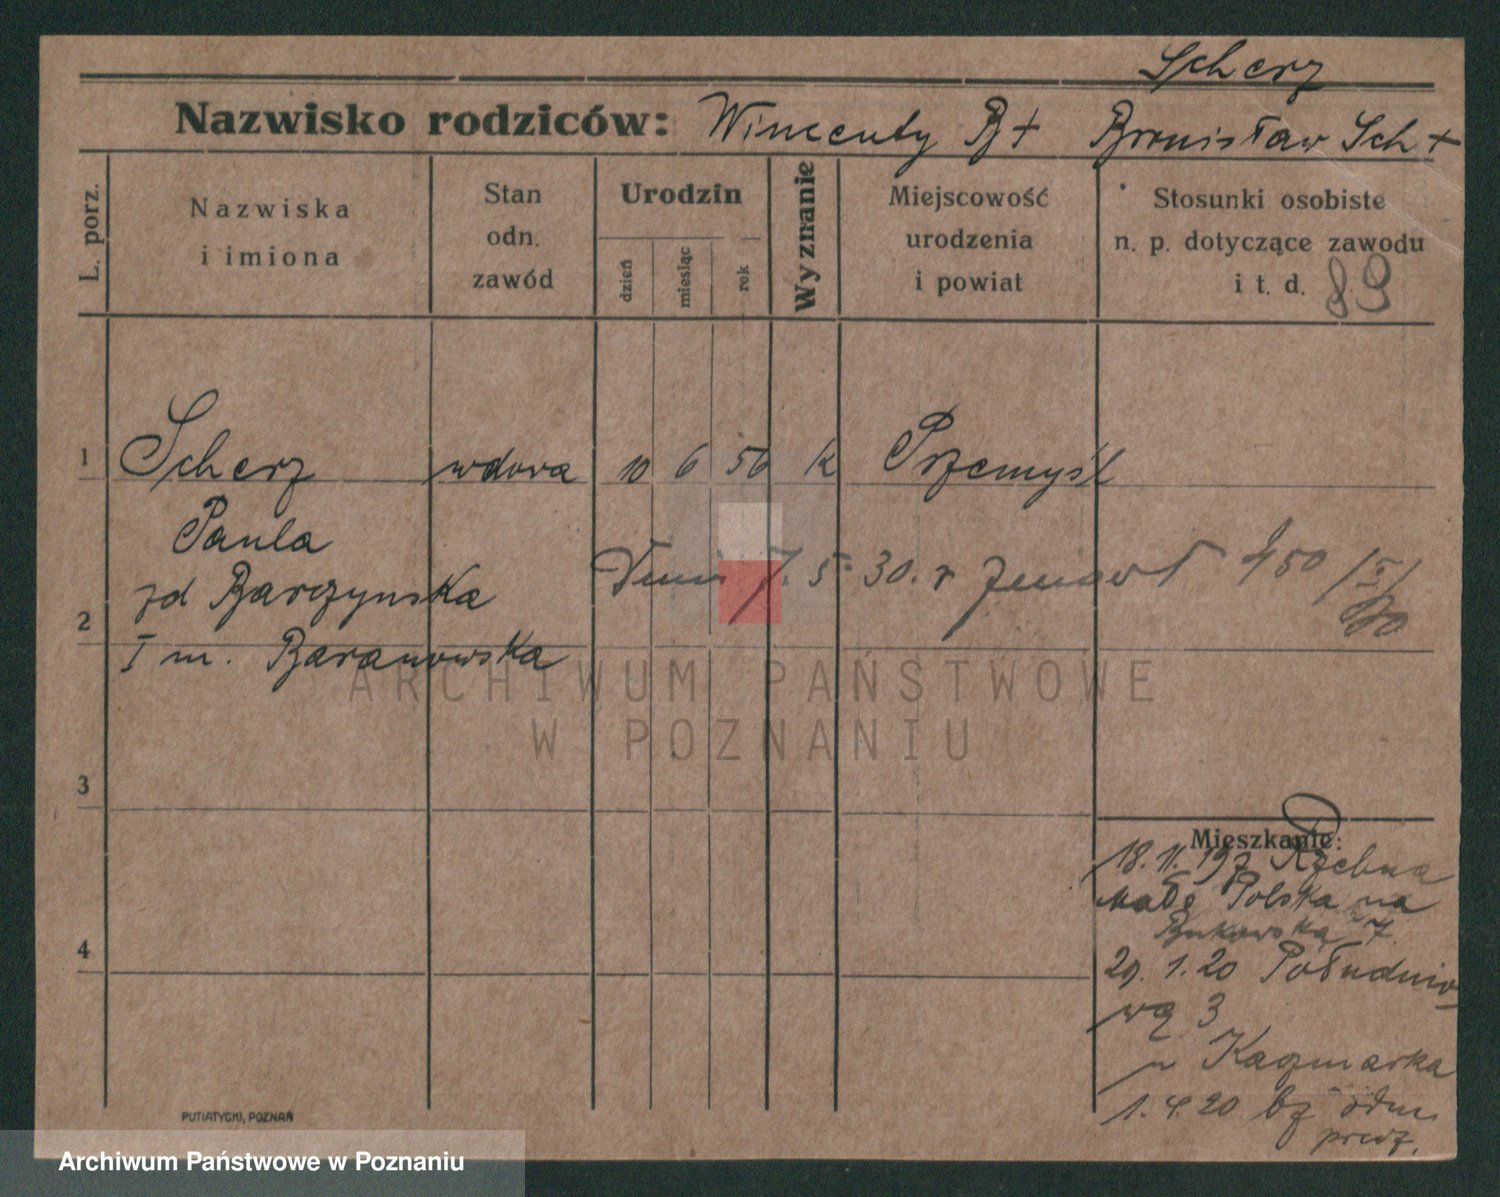 Scherz
Nazwisko rodziców: Wincenty B+ Bronisław Sch+
L. porz.
Nazwiska
i imiona
Stan
odn.
zawód
Urodzin
dzień
miesiąc
rok
Wyznanie
Miejscowość
urodzenia
i powiat
Stosunki osobiste
n. p. dotyczące zawodu
i t. d.
89
1 Scherz wdova 10 6 56 k Przemyśl
Paula
zd Barczynska
7. 5. 30. r 450
2
I m. Baranowska
ARCHIWUM PAŃSTWOWE
W POZNANIU
3
Mieszkanie:
18. 11. 19
Polska na
Bukowska 7
4
29. 1. 20 Południo
wa 3
Kaczmarka
1. 4. 20
PUTIATYCKI, POZNAŃ
Archiwum Państwowe w Poznaniu